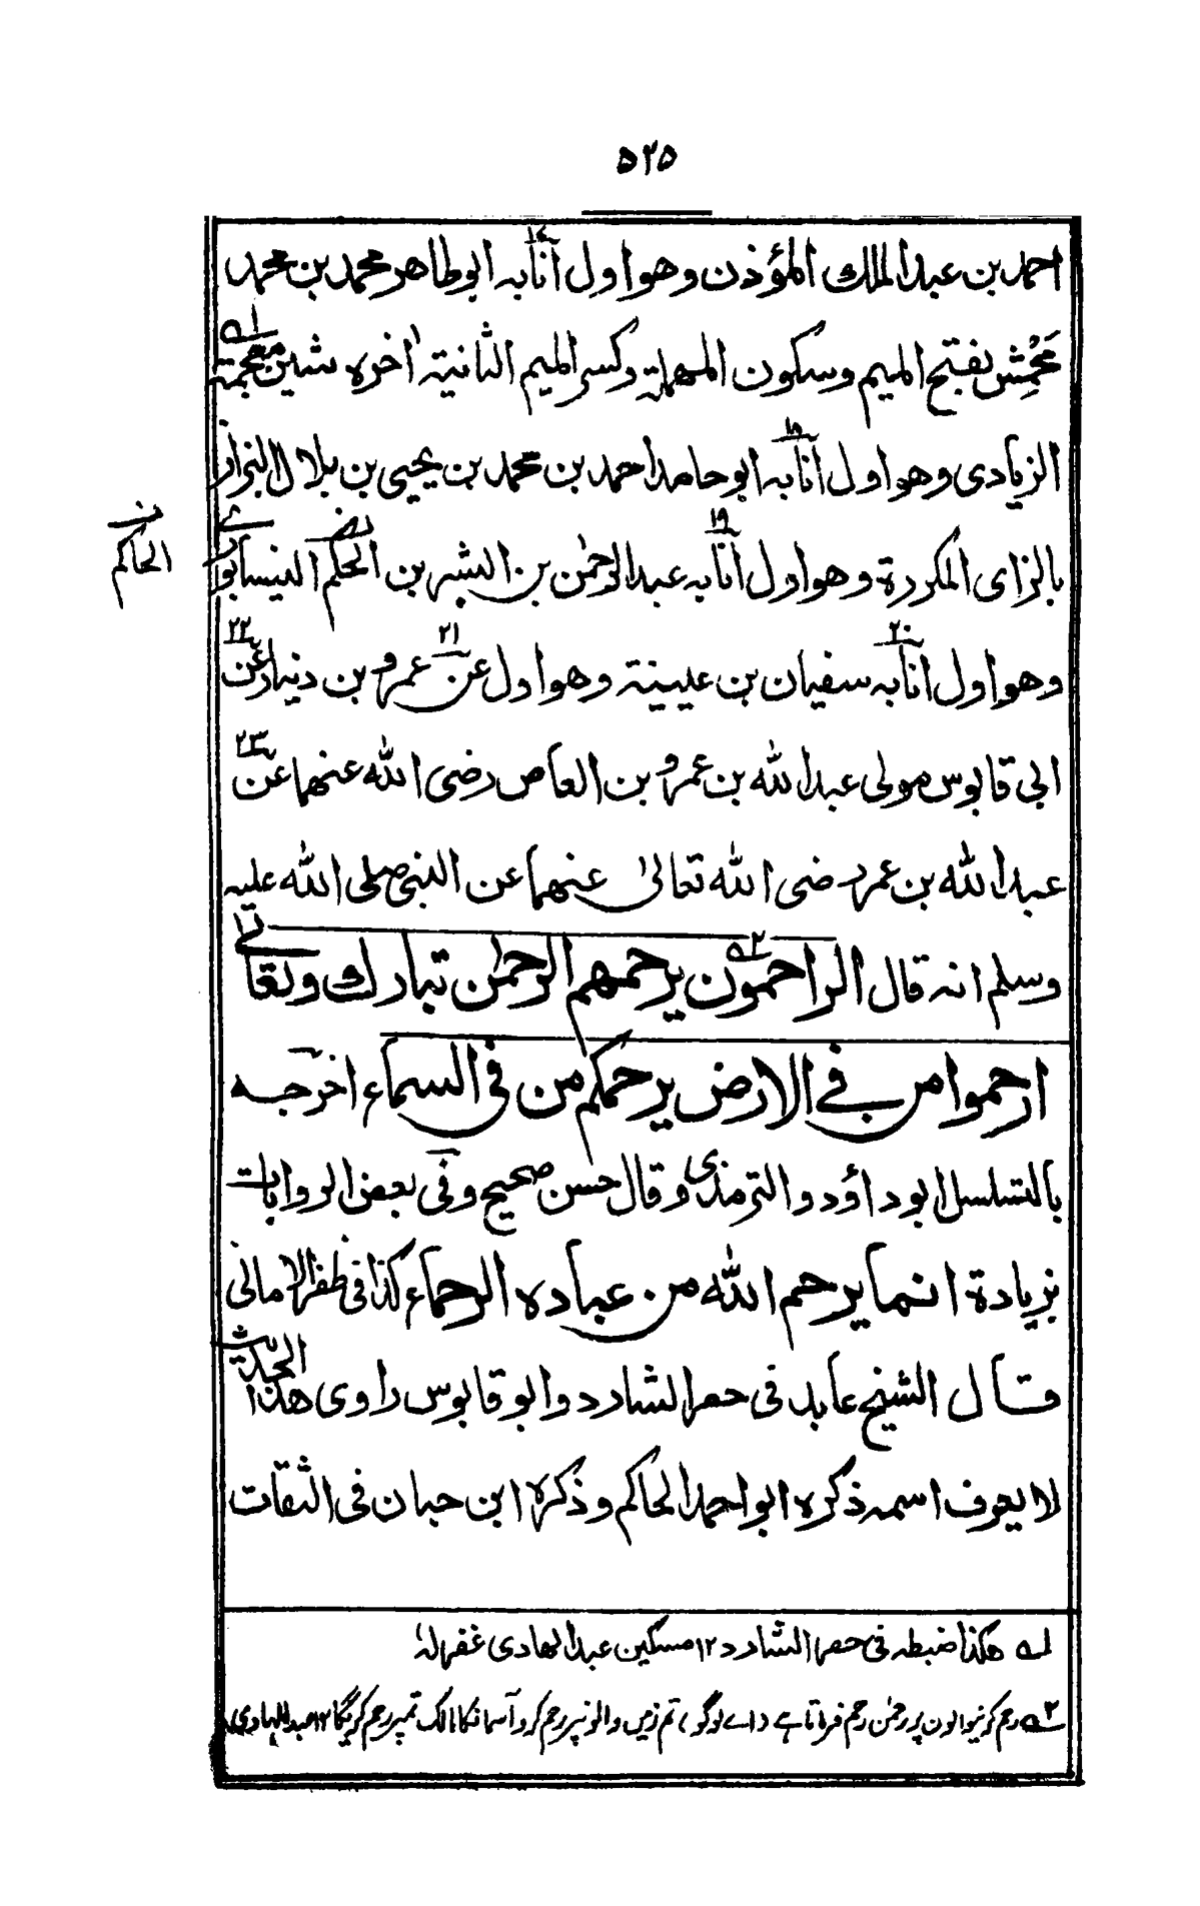 ٥٢٥
احمد بن عبد الملك المؤذن وهو اول انا به ابو طاهر محمد بن محمد
مَحْمِش بفتح الميم وسكون المهملة وكسر الميم الثانية اخره شين معجمة
الزيادى وهو اول انا به ابو حامد احمد بن محمد بن يحيى بن بلال البزاز
بالزاى المكررة وهو اول انا به عبد الرحمٰن بن البشر بن الحكم النيسابورى
الحاكم
وهو اول انا به سفيان بن عيينة وهو اول عن عمرو بن دينار عن
ابى قابوس مولى عبد الله بن عمرو بن العاص رضى الله عنهما عن
عبد الله بن عمر رضى الله تعالىٰ عنهما عن النبى صلى الله عليه
وسلم انه قال الراحمون يرحمهم الرحمٰن تبارك وتعالى
ارحموا من فى الارض يرحمكم من فى السماء اخرجه
بالتسلسل ابو داؤد والترمذى وقال حسن صحيح وفى بعض الروايات
بزيادة انما يرحم الله من عباده الرحماء كذا فى ظفر الامانى
قال الشيخ عابد فى حصر الشارد وابو قابوس راوى هذا الحديث
لا يعرف اسمه ذكره ابو احمد الحاكم وذكره ابن حبان فى الثقات
١ه هكذا ضبطه فى حصر الشارد ١٢ مسكين عبد الهادى غفر لهٗ
٢ه رحم کرنیوالون پر رحمٰن رحم فرماتا ہے (اے لوگو) تم زمیں والونپر رحم کرو آسمانکا مالک تمپر رحم کریگا ١٢ عبد الهادى